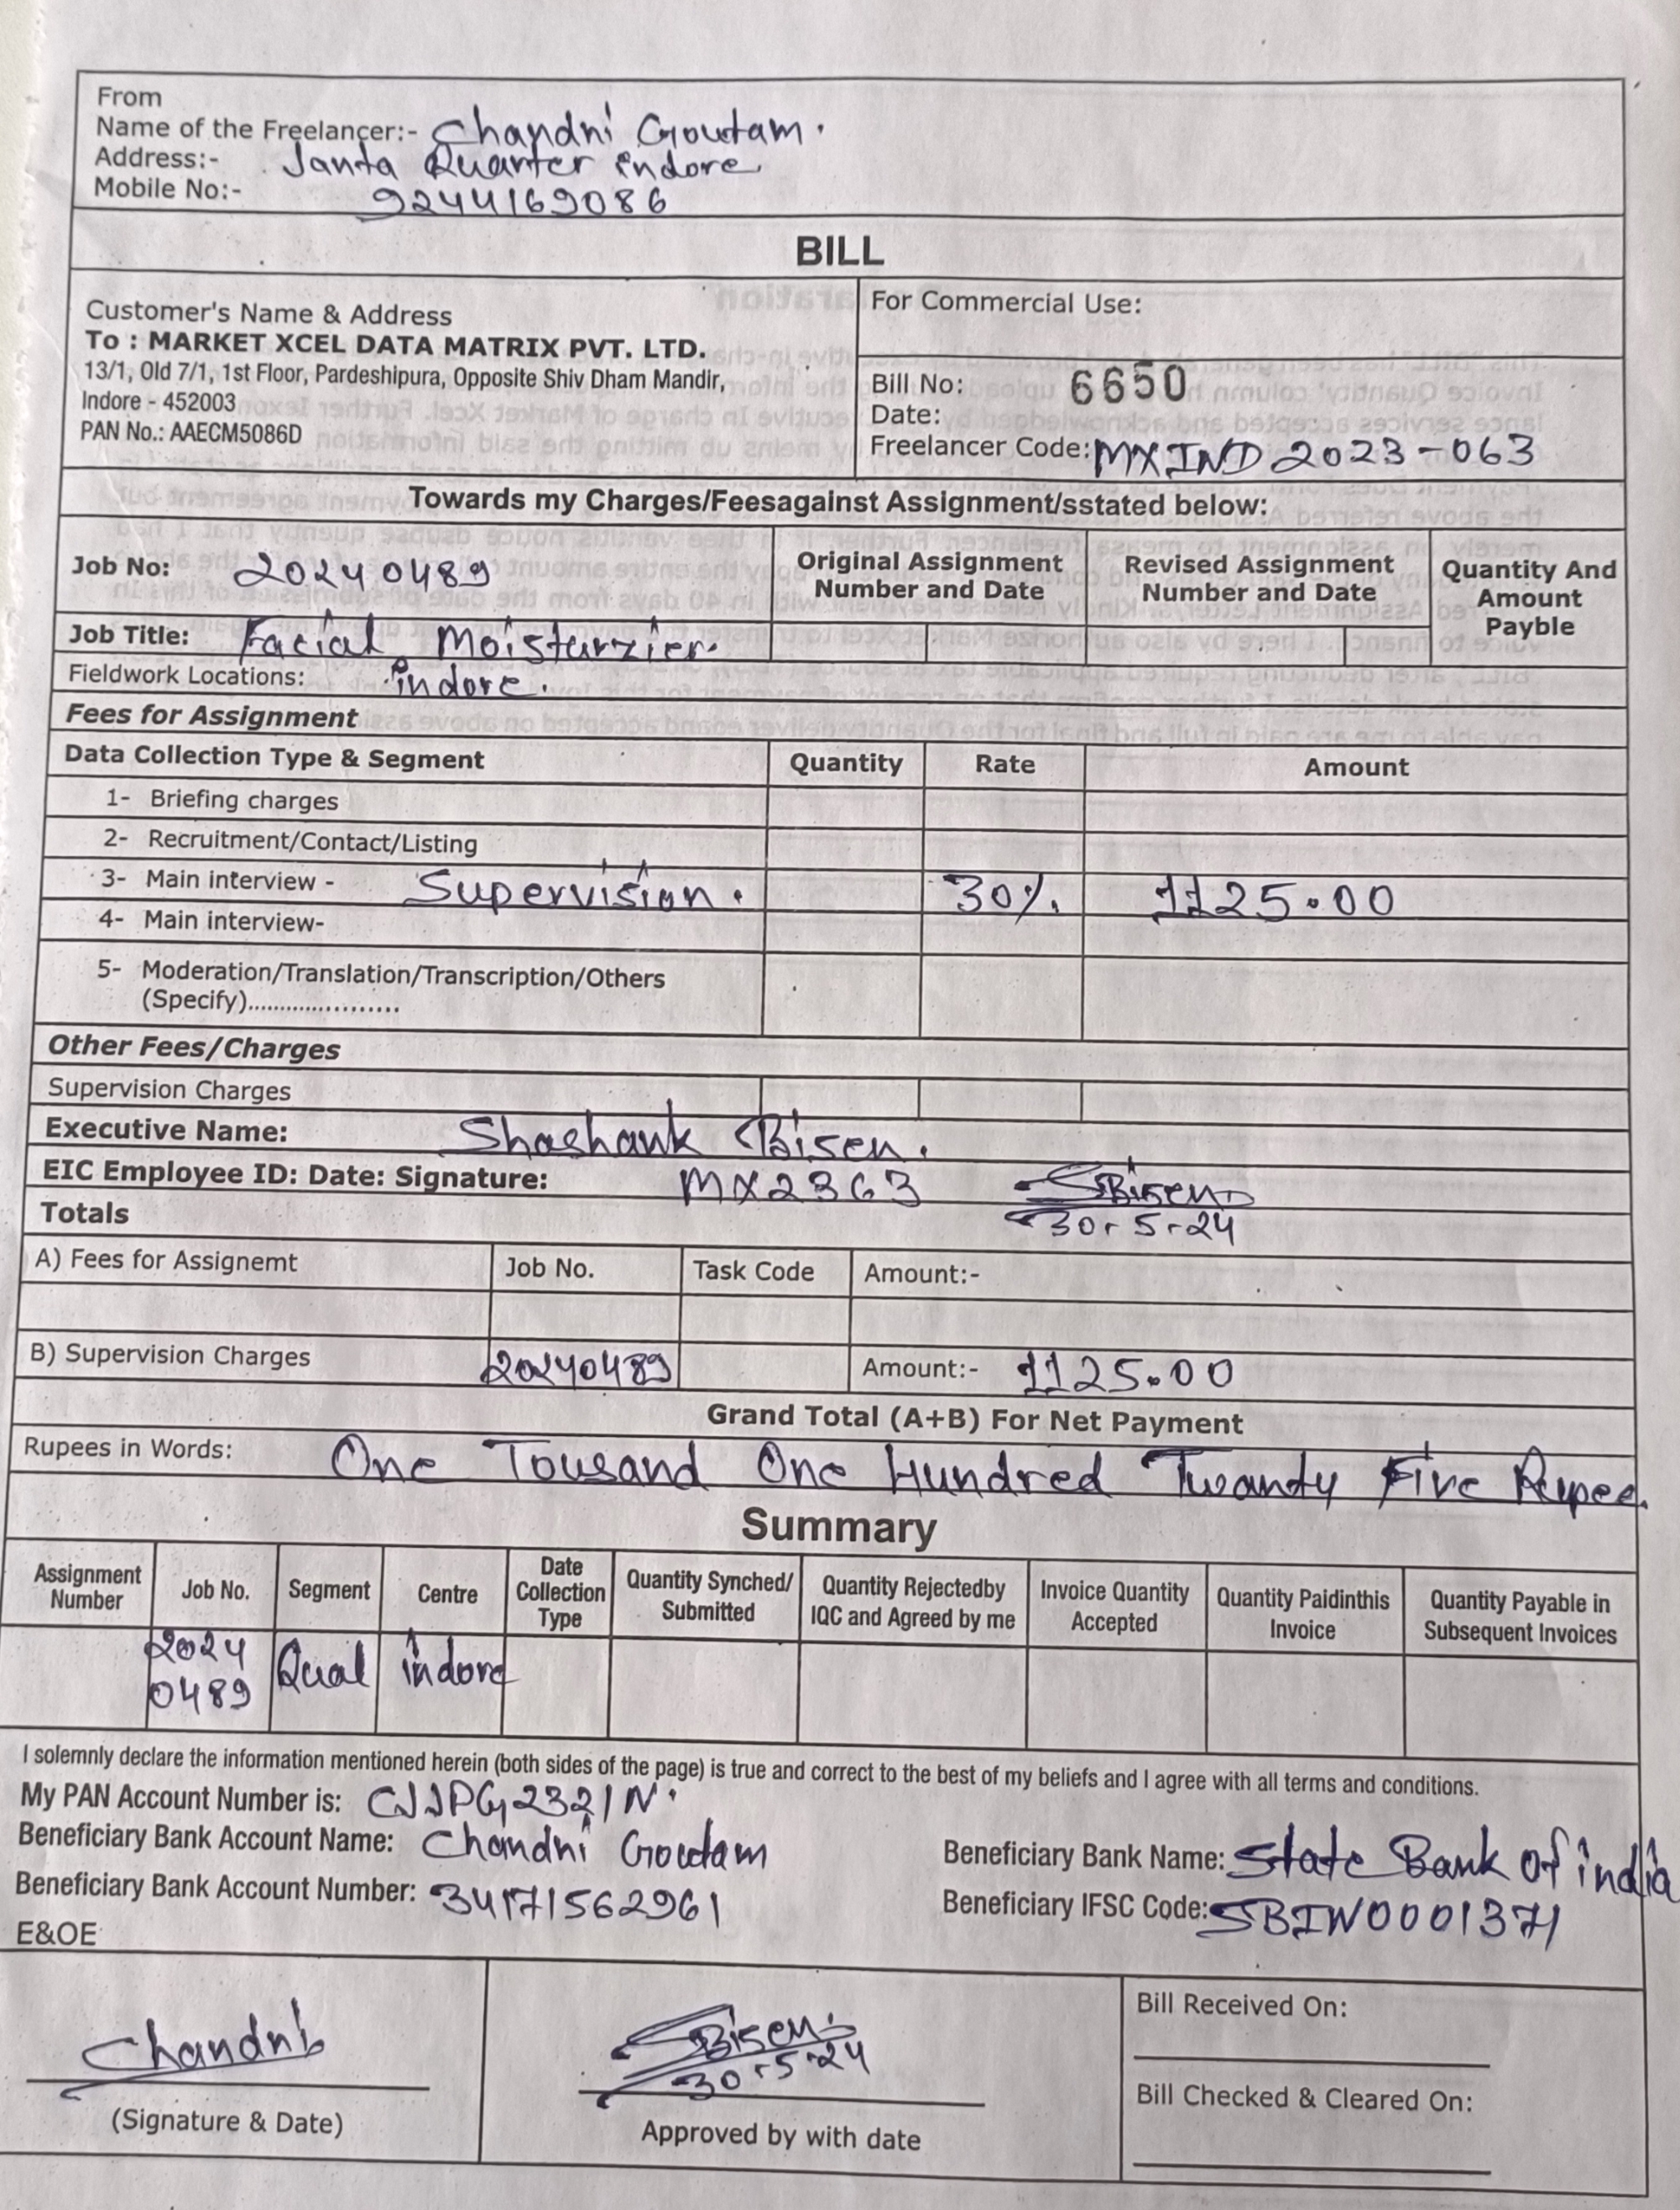 From
Name of the Freelancer:- Chandni Goutam.
Address:- Janta Quarter indore
Mobile No:- 9244169086
BILL
Customer's Name & Address
To : MARKET XCEL DATA MATRIX PVT. LTD.
13/1, Old 7/1, 1st Floor, Pardeshipura, Opposite Shiv Dham Mandir,
Indore - 452003
PAN No.: AAECM5086D
For Commercial Use:
Bill No: 6650
Date:
Freelancer Code: MXIND2023-063
Towards my Charges/Feesagainst Assignment/sstated below:
Job No: 20240489
Original Assignment Number and Date
Revised Assignment Number and Date
Quantity And Amount Payble
Job Title: Facial Moisturzier.
Fieldwork Locations: indore.
Fees for Assignment
Data Collection Type & Segment Quantity Rate Amount
1- Briefing charges
2- Recruitment/Contact/Listing
3- Main interview - Supervision. 30% 1125.00
4- Main interview-
5- Moderation/Translation/Transcription/Others
(Specify).....................
Other Fees/Charges
Supervision Charges
Executive Name: Shashank Bisen.
EIC Employee ID: Date: Signature: MX2363 SBisen
30-5-24
Totals
A) Fees for Assignemt Job No. Task Code Amount:-
B) Supervision Charges 20240489 Amount:- 1125.00
Grand Total (A+B) For Net Payment
Rupees in Words: One Tousand One Hundred Twandy Five Rupee.
Summary
Assignment Number Job No. Segment Centre Date Collection Type Quantity Synched/ Submitted Quantity Rejectedby IQC and Agreed by me Invoice Quantity Accepted Quantity Paidinthis Invoice Quantity Payable in Subsequent Invoices
2024 Qual indore
0489
I solemnly declare the information mentioned herein (both sides of the page) is true and correct to the best of my beliefs and I agree with all terms and conditions.
My PAN Account Number is: CJJPG2321N.
Beneficiary Bank Account Name: Chandni Goutam
Beneficiary Bank Name: State Bank of india
Beneficiary Bank Account Number: 34171562961
Beneficiary IFSC Code: SBIN0001371
E&OE
Chandni
(Signature & Date)
SBisen
30-5-24
Approved by with date
Bill Received On:
Bill Checked & Cleared On: